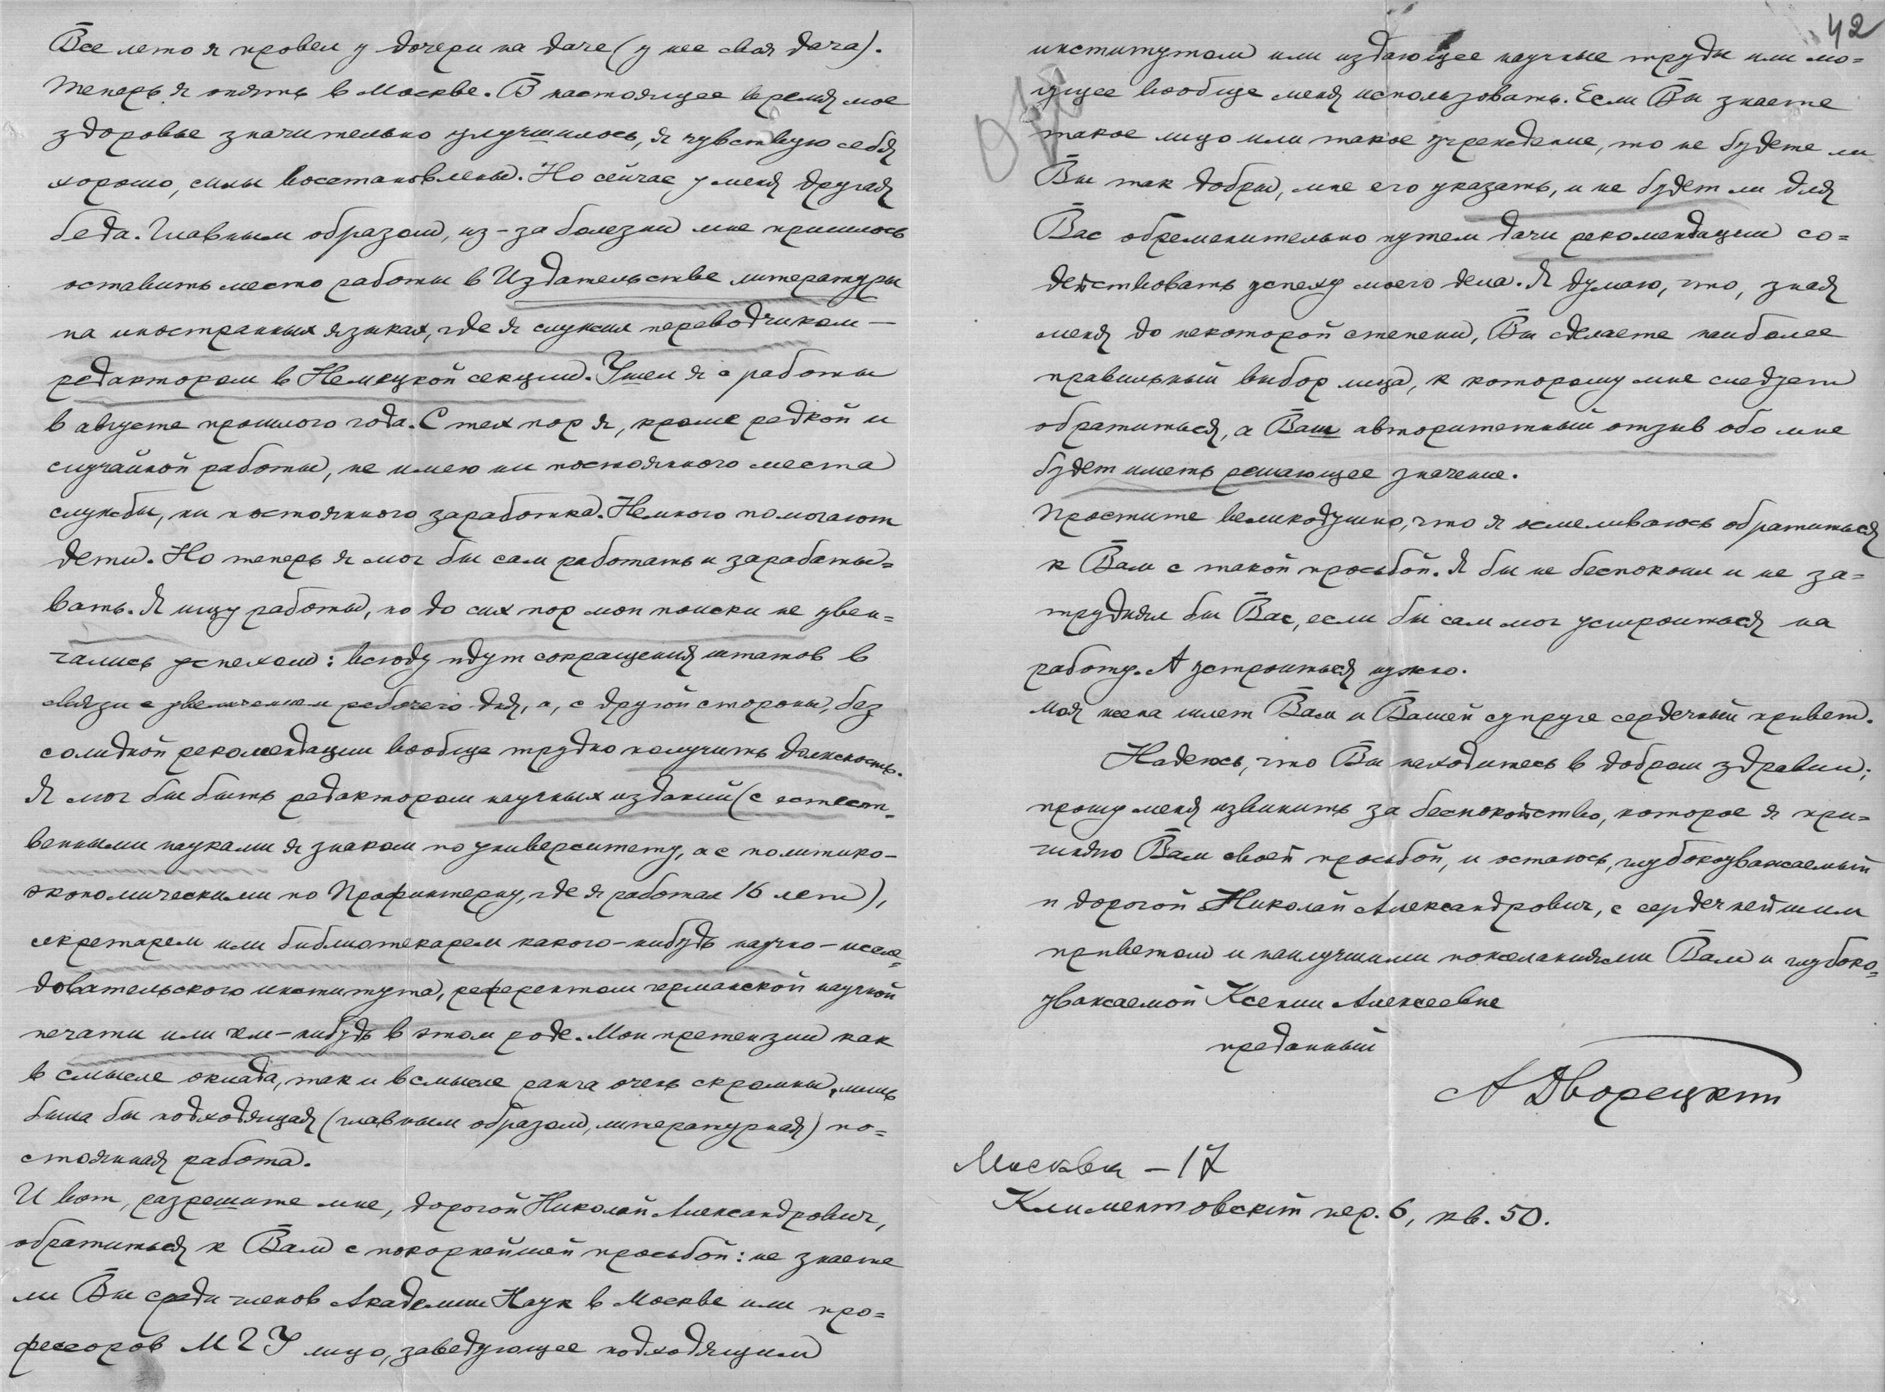 Все лето я провел у дочери на даче (у нее своя дача).
Теперь я опять в Москве. В настоящее время мое
здоровье значительно улучшилось, я чувствую себя
хорошо, силы восстановлены. Но сейчас у меня другая
беда. Главным образом, из-за болезни мне пришлось
оставить место работы в Издательстве литературы
на иностранных языках, где я служил переводчиком —
редактором в Немецкой секции. Ушел я с работы
в августе прошлого года. С тех пор я, кроме редкой и
случайной работы, не имею ни постоянного места
службы, ни постоянного заработка. Немного помогают
дети. Но теперь я мог бы сам работать и зарабаты=
вать. Я ищу работы, но до сих пор мои поиски не увен=
чались успехом: всюду идут сокращения штатов в
связи с увеличением рабочего дня, а, с другой стороны, без
солидной рекомендации вообще трудно получить должность.
Я мог бы быть редактором научных изданий (с естест=
венными науками я знаком по университету, а с политико-
экономическими по Профинтерну, где я работал 16 лет),
секретарем или библиотекарем какого-нибудь научно-иссле=
довательского института, референтом германской научной
печати или чем-нибудь в этом роде. Мои претензии как
в смысле оклада, так и в смысле ранга очень скромны, лишь
была бы подходящая (главным образом, литературная) по=
стоянная работа.
И вот, разрешите мне, дорогой Николай Александрович,
обратиться к Вам с покорнейшей просьбой: не знаете
ли Вы среди членов Академии Наук в Москве или про=
фессоров МГУ лицо, заведующее подходящим
42
институтом или издающее научные труды или мо=
гущее вообще меня использовать. Если Вы знаете
такое лицо или такое учреждение, то не будете ли
Вы так добры, мне его указать, и не будет ли для
Вас обременительно путем дачи рекомендации со=
действовать успеху моего дела. Я думаю, что, зная
меня до некоторой степени, Вы сделаете наиболее
правильный выбор лица, к которому мне следует
обратиться, а Ваш авторитетный отзыв обо мне
будет иметь решающее значение.
Простите великодушно, что я осмеливаюсь обратиться
к Вам с такой просьбой. Я бы не беспокоил и не за=
труднял бы Вас, если бы сам мог устроиться на
работу. А устроиться нужно.
Моя жена шлет Вам и Вашей супруге сердечный привет.
Надеюсь, что Вы находитесь в добром здравии;
прошу меня извинить за беспокойство, которое я при=
чиняю Вам своей просьбой, и остаюсь, глубокоуважаемый
и дорогой Николай Александрович, с сердечнейшим
приветом и наилучшими пожеланиями Вам и глубоко=
уважаемой Ксении Алексеевне
преданный
А Дворецкий
Москва – 17
Климентовский пер. 6, кв. 50.